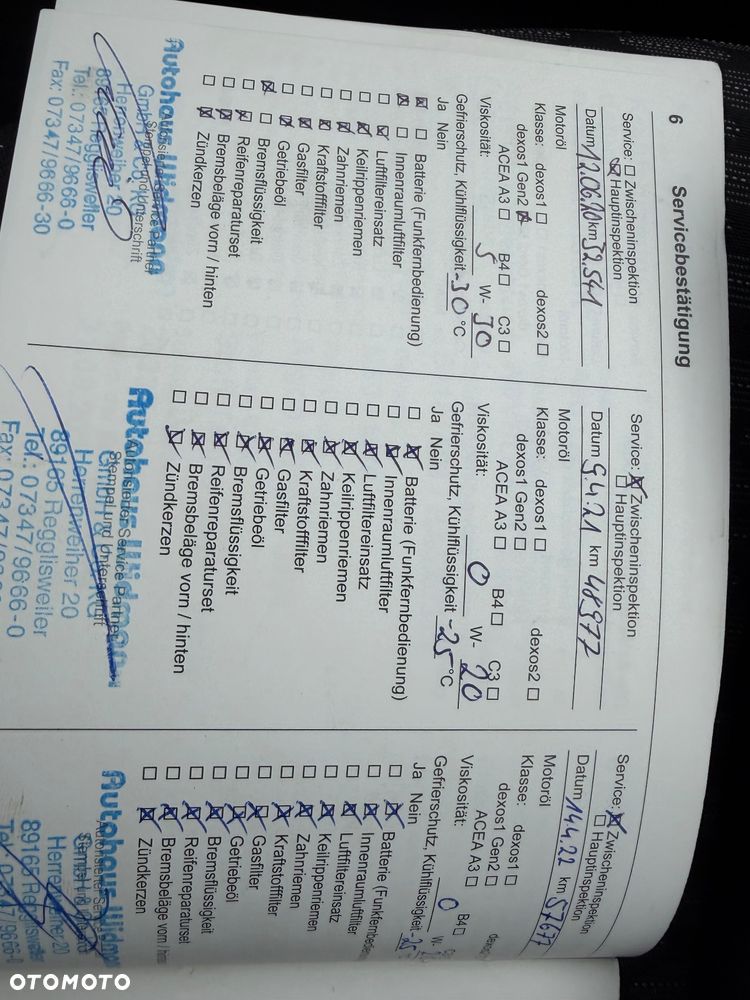 6
Servicebestätigung
Service: ☐ Zwischeninspektion
☒ Hauptinspektion
Datum 17.06.20 km 32.541
Motoröl
Klasse: dexos1 ☐ dexos2 ☐
dexos1 Gen2 ☒
ACEA A3 ☐ B4 ☐ C3 ☐
Viskosität: 5 W- 30
Gefrierschutz, Kühlflüssigkeit -30 °C
Ja Nein
☒ ☐ Batterie (Funkfernbedienung)
☒ ☐ Innenraumluftfilter
☐ ☒ Luftfiltereinsatz
☐ ☒ Keilrippenriemen
☐ ☒ Zahnriemen
☐ ☒ Kraftstofffilter
☐ ☒ Gasfilter
☐ ☒ Getriebeöl
☒ ☐ Bremsflüssigkeit
☐ ☒ Reifenreparaturset
☐ ☒ Bremsbeläge vorn / hinten
☐ ☒ Zündkerzen
Stempel und Unterschrift
Herrenweiher 20
Tel.: 07347/9666-0
Fax: 07347/9666-30
Service: ☒ Zwischeninspektion
☐ Hauptinspektion
Datum 9.4.21 km 48977
Motoröl
Klasse: dexos1 ☐ dexos2 ☐
dexos1 Gen2 ☐
ACEA A3 ☐ B4 ☐ C3 ☐
Viskosität: 0 W- 20
Gefrierschutz, Kühlflüssigkeit -25 °C
Ja Nein
☐ ☒ Batterie (Funkfernbedienung)
☐ ☒ Innenraumluftfilter
☐ ☒ Luftfiltereinsatz
☐ ☒ Keilrippenriemen
☐ ☒ Zahnriemen
☐ ☒ Kraftstofffilter
☐ ☒ Gasfilter
☐ ☒ Getriebeöl
☐ ☒ Bremsflüssigkeit
☐ ☒ Reifenreparaturset
☐ ☒ Bremsbeläge vorn / hinten
☐ ☒ Zündkerzen
Autohaus
Autorisierter Service Partner
Stempel und Unterschrift
Herrenweiher 20
89165 Regglisweiler
Tel.: 07347/9666-0
Service: ☒ Zwischeninspektion
☐ Hauptinspektion
Datum 14.4.22 km 57677
Motoröl
Klasse: dexos1 ☐
dexos1 Gen2 ☐
ACEA A3 ☐ B4 ☐
Viskosität: 0 W-
Gefrierschutz, Kühlflüssigkeit -25
Ja Nein
☐ ☒ Batterie (Funkfernbedien
☐ ☒ Innenraumluftfilter
☐ ☒ Luftfiltereinsatz
☐ ☒ Keilrippenriemen
☐ ☒ Zahnriemen
☐ ☒ Kraftstofffilter
☐ ☒ Gasfilter
☐ ☒ Getriebeöl
☐ ☒ Bremsflüssigkeit
☐ ☒ Reifenreparaturset
☐ ☒ Bremsbeläge vorn / hinten
☐ ☒ Zündkerzen
Autohaus
OTOMOTO